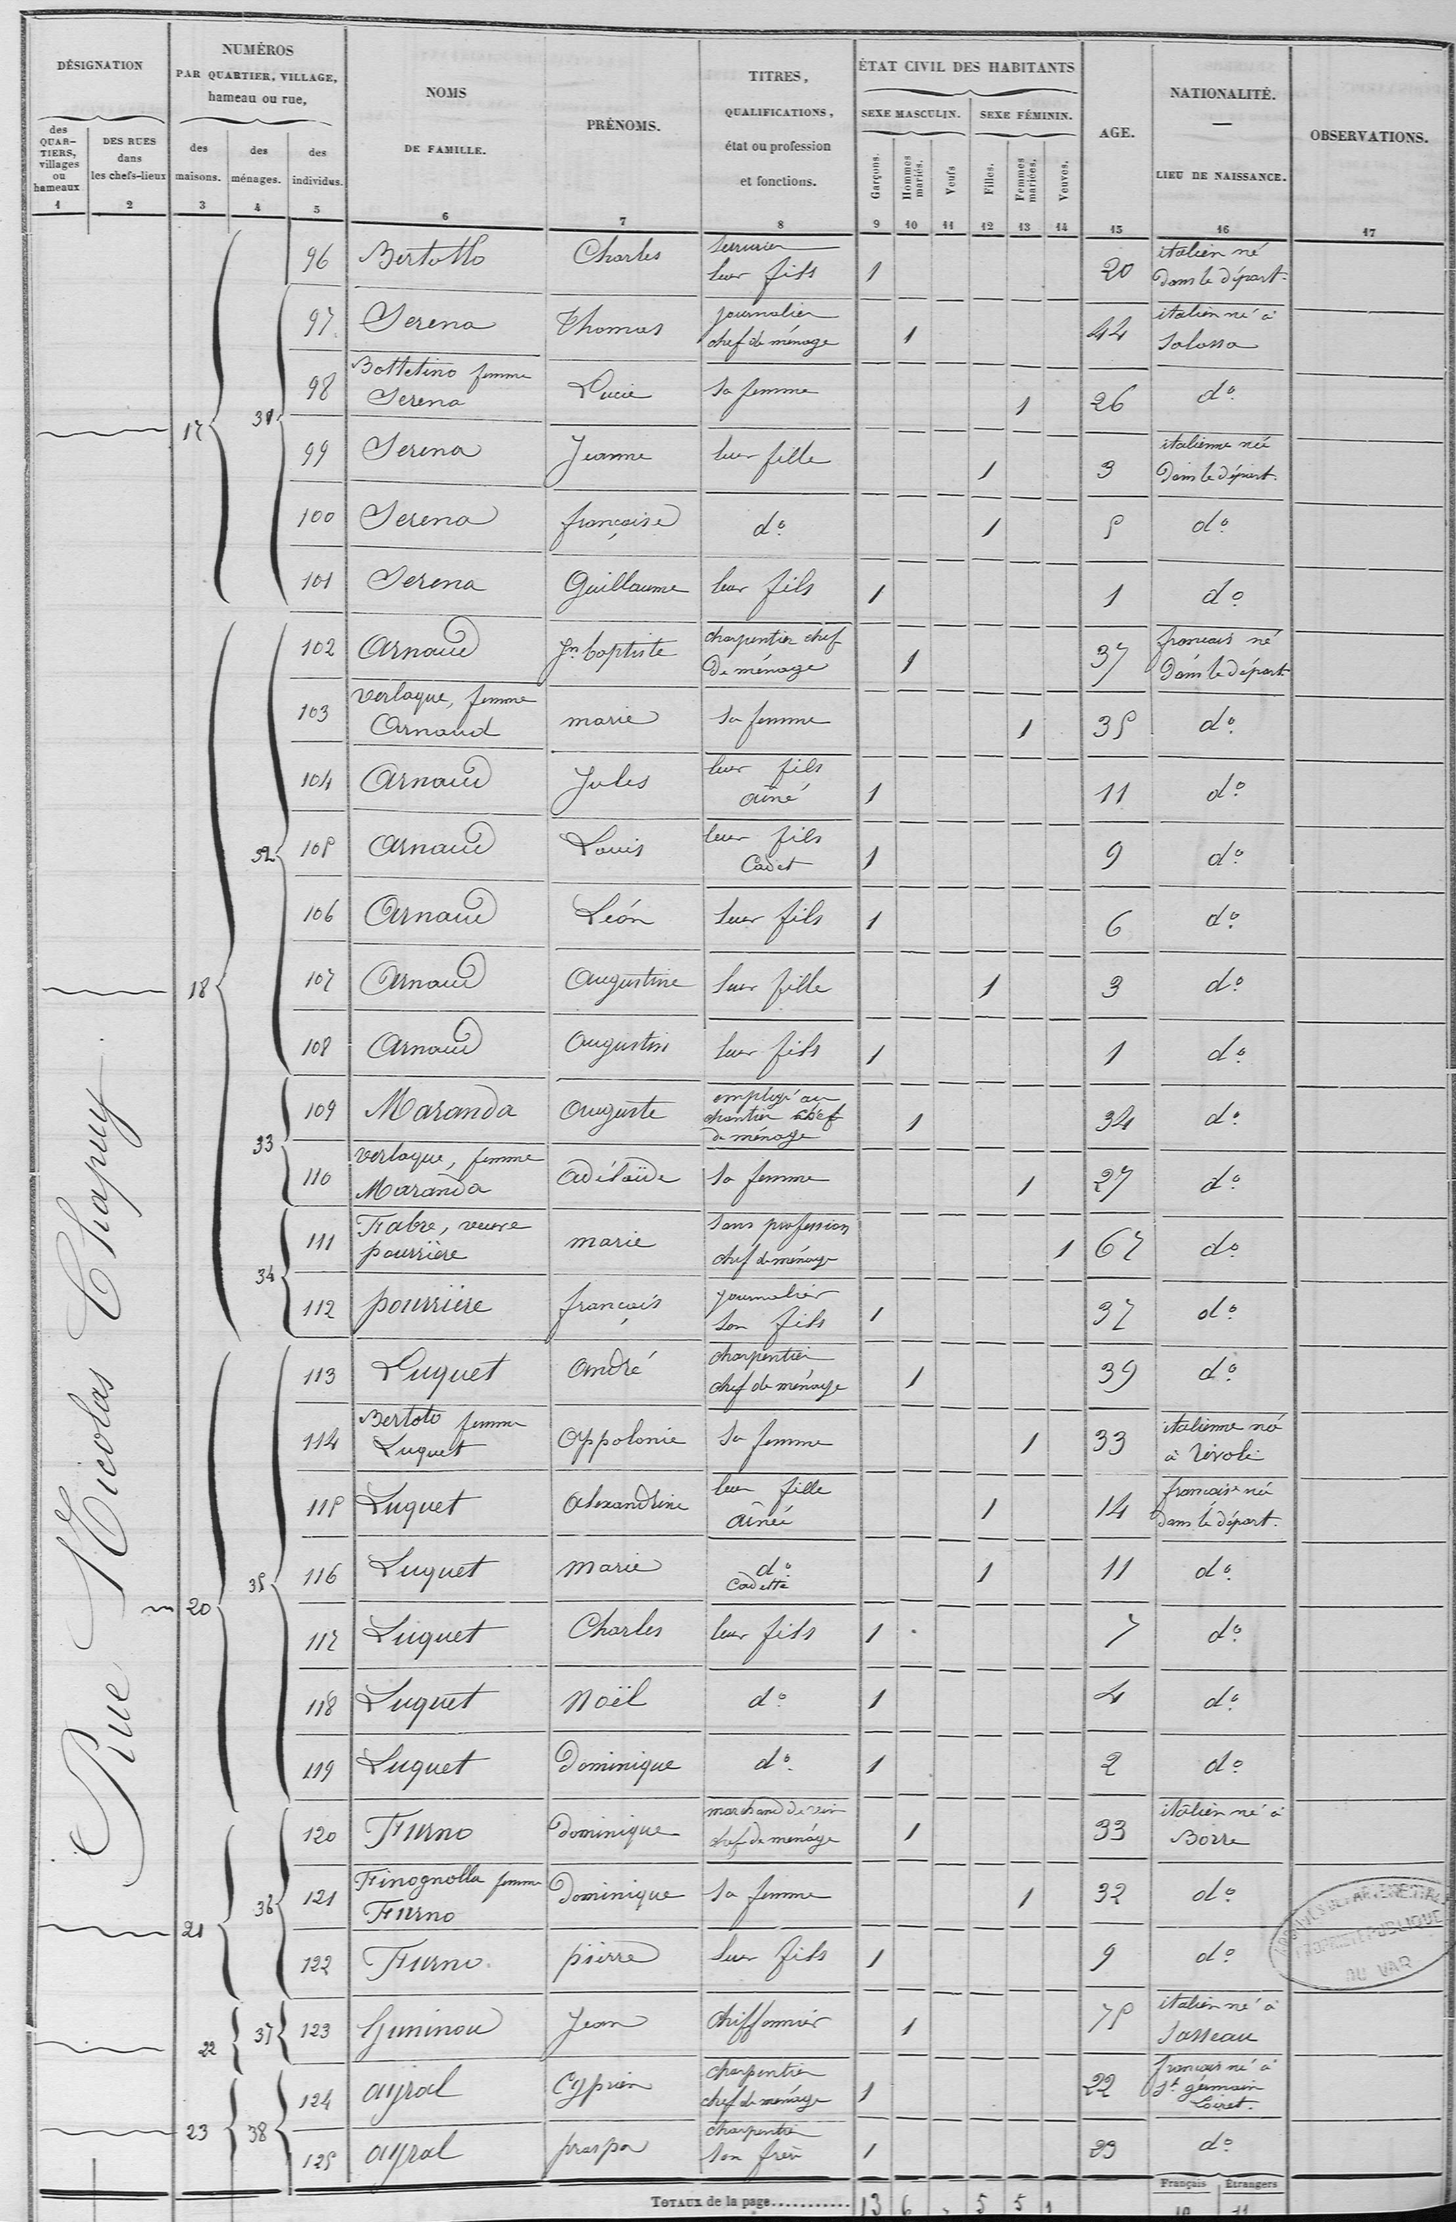 DÉSIGNATION
des QUAR-TIERS, villages ou hameaux
DES RUES dans les chefs-lieux
NUMÉROS
PAR QUARTIER, VILLAGE,
hameau ou rue,
des maisons.
des ménages.
des individus.
NOMS
DE FAMILLE.
PRÉNOMS.
TITRES,
QUALIFICATIONS,
état ou profession
et fonctions.
ÉTAT CIVIL DES HABITANTS
SEXE MASCULIN.
SEXE FÉMININ.
Garçons.
Hommes mariés.
Veufs
Filles.
Femmes mariées.
Veuves.
AGE.
NATIONALITÉ.
—
LIEU DE NAISSANCE.
OBSERVATIONS.
1 2 3 4 5 6 7 8 9 10 11 12 13 14 15 16 17
Rue St Nicolas Chapuy
96 Bertotto Charles serrurier leur fils 1 20 italien né dans le départ.
17 31
97 Serena Thomas journalier chef de ménage 1 44 italien né à Salassa
98 Bottetino femme Serena Lucie sa femme 1 26 do
99 Serena Jeanne leur fille 1 3 italienne née dans le départ.
100 Serena françoise do 1 5 do
101 Serena Guillaume leur fils 1 1 do
18 32
102 Arnaud Jn baptiste charpentier chef de ménage 1 37 français né dans le départ
103 Verlaque, femme Arnaud marie sa femme 1 35 do
104 Arnaud Jules leur fils aîné 1 11 do
105 Arnaud Louis leur fils Cadet 1 9 do
106 Arnaud Léon leur fils 1 6 do
107 Arnaud Augustine leur fille 1 3 do
108 Arnaud Augustin leur fils 1 1 do
33
109 Maranda Auguste employé au chantier chef de ménage 1 34 do
110 Verlaque, femme Maranda Adélaïde sa femme 1 27 do
34
111 Fabre, veuve pourrière marie sans profession chef de ménage 1 67 do
112 pourrière françois journalier son fils 1 37 do
20 35
113 Luquet André charpentier chef de ménage 1 39 do
114 Bertoto femme Luquet Appolonie sa femme 1 33 italienne né à Rivoli
115 Luquet Alexandrine leur fille aînée 1 14 française née dans le départ.
116 Luquet marie do Cadette 1 11 do
117 Luquet Charles leur fils 1 7 do
118 Luquet Noël do 1 4 do
119 Luquet Dominique do 1 2 do
21 36
120 Furno dominique marchand de vin chef de ménage 1 33 italien né à Borre
121 Finognolla femme Furno Dominique sa femme 1 32 do
122 Furno pierre leur fils 1 9 do
22 37
123 Guninou Jean chiffonnier 1 75 italien né à Sasseau
23 38
124 ayral Cyprien charpentier chef de ménage 1 22 français né à St germain Loiret.
125 ayral prosper charpentier son frère 1 23 do
Français Étrangers
TOTAUX de la page........... 13 6 5 5 1
ARCHIVES DÉPARTEMENTALES
PROPRIÉTÉ PUBLIQUE
DU VAR